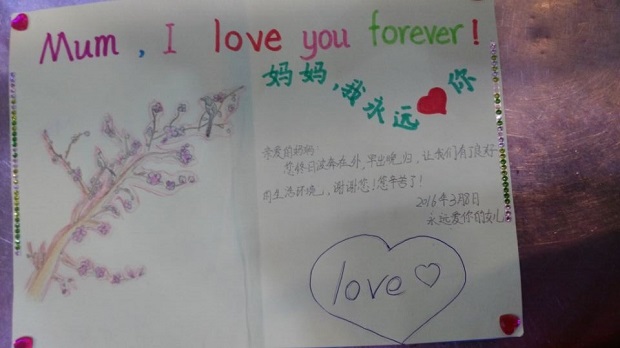 Mum, I love you forever!
妈妈,我永远❤你
亲爱的妈妈:
您终日波奔在外,早出晚归,让我们有了良好
的生活环境,谢谢您!您辛苦了!
2016年3月8日
永远爱你的女儿
love♡